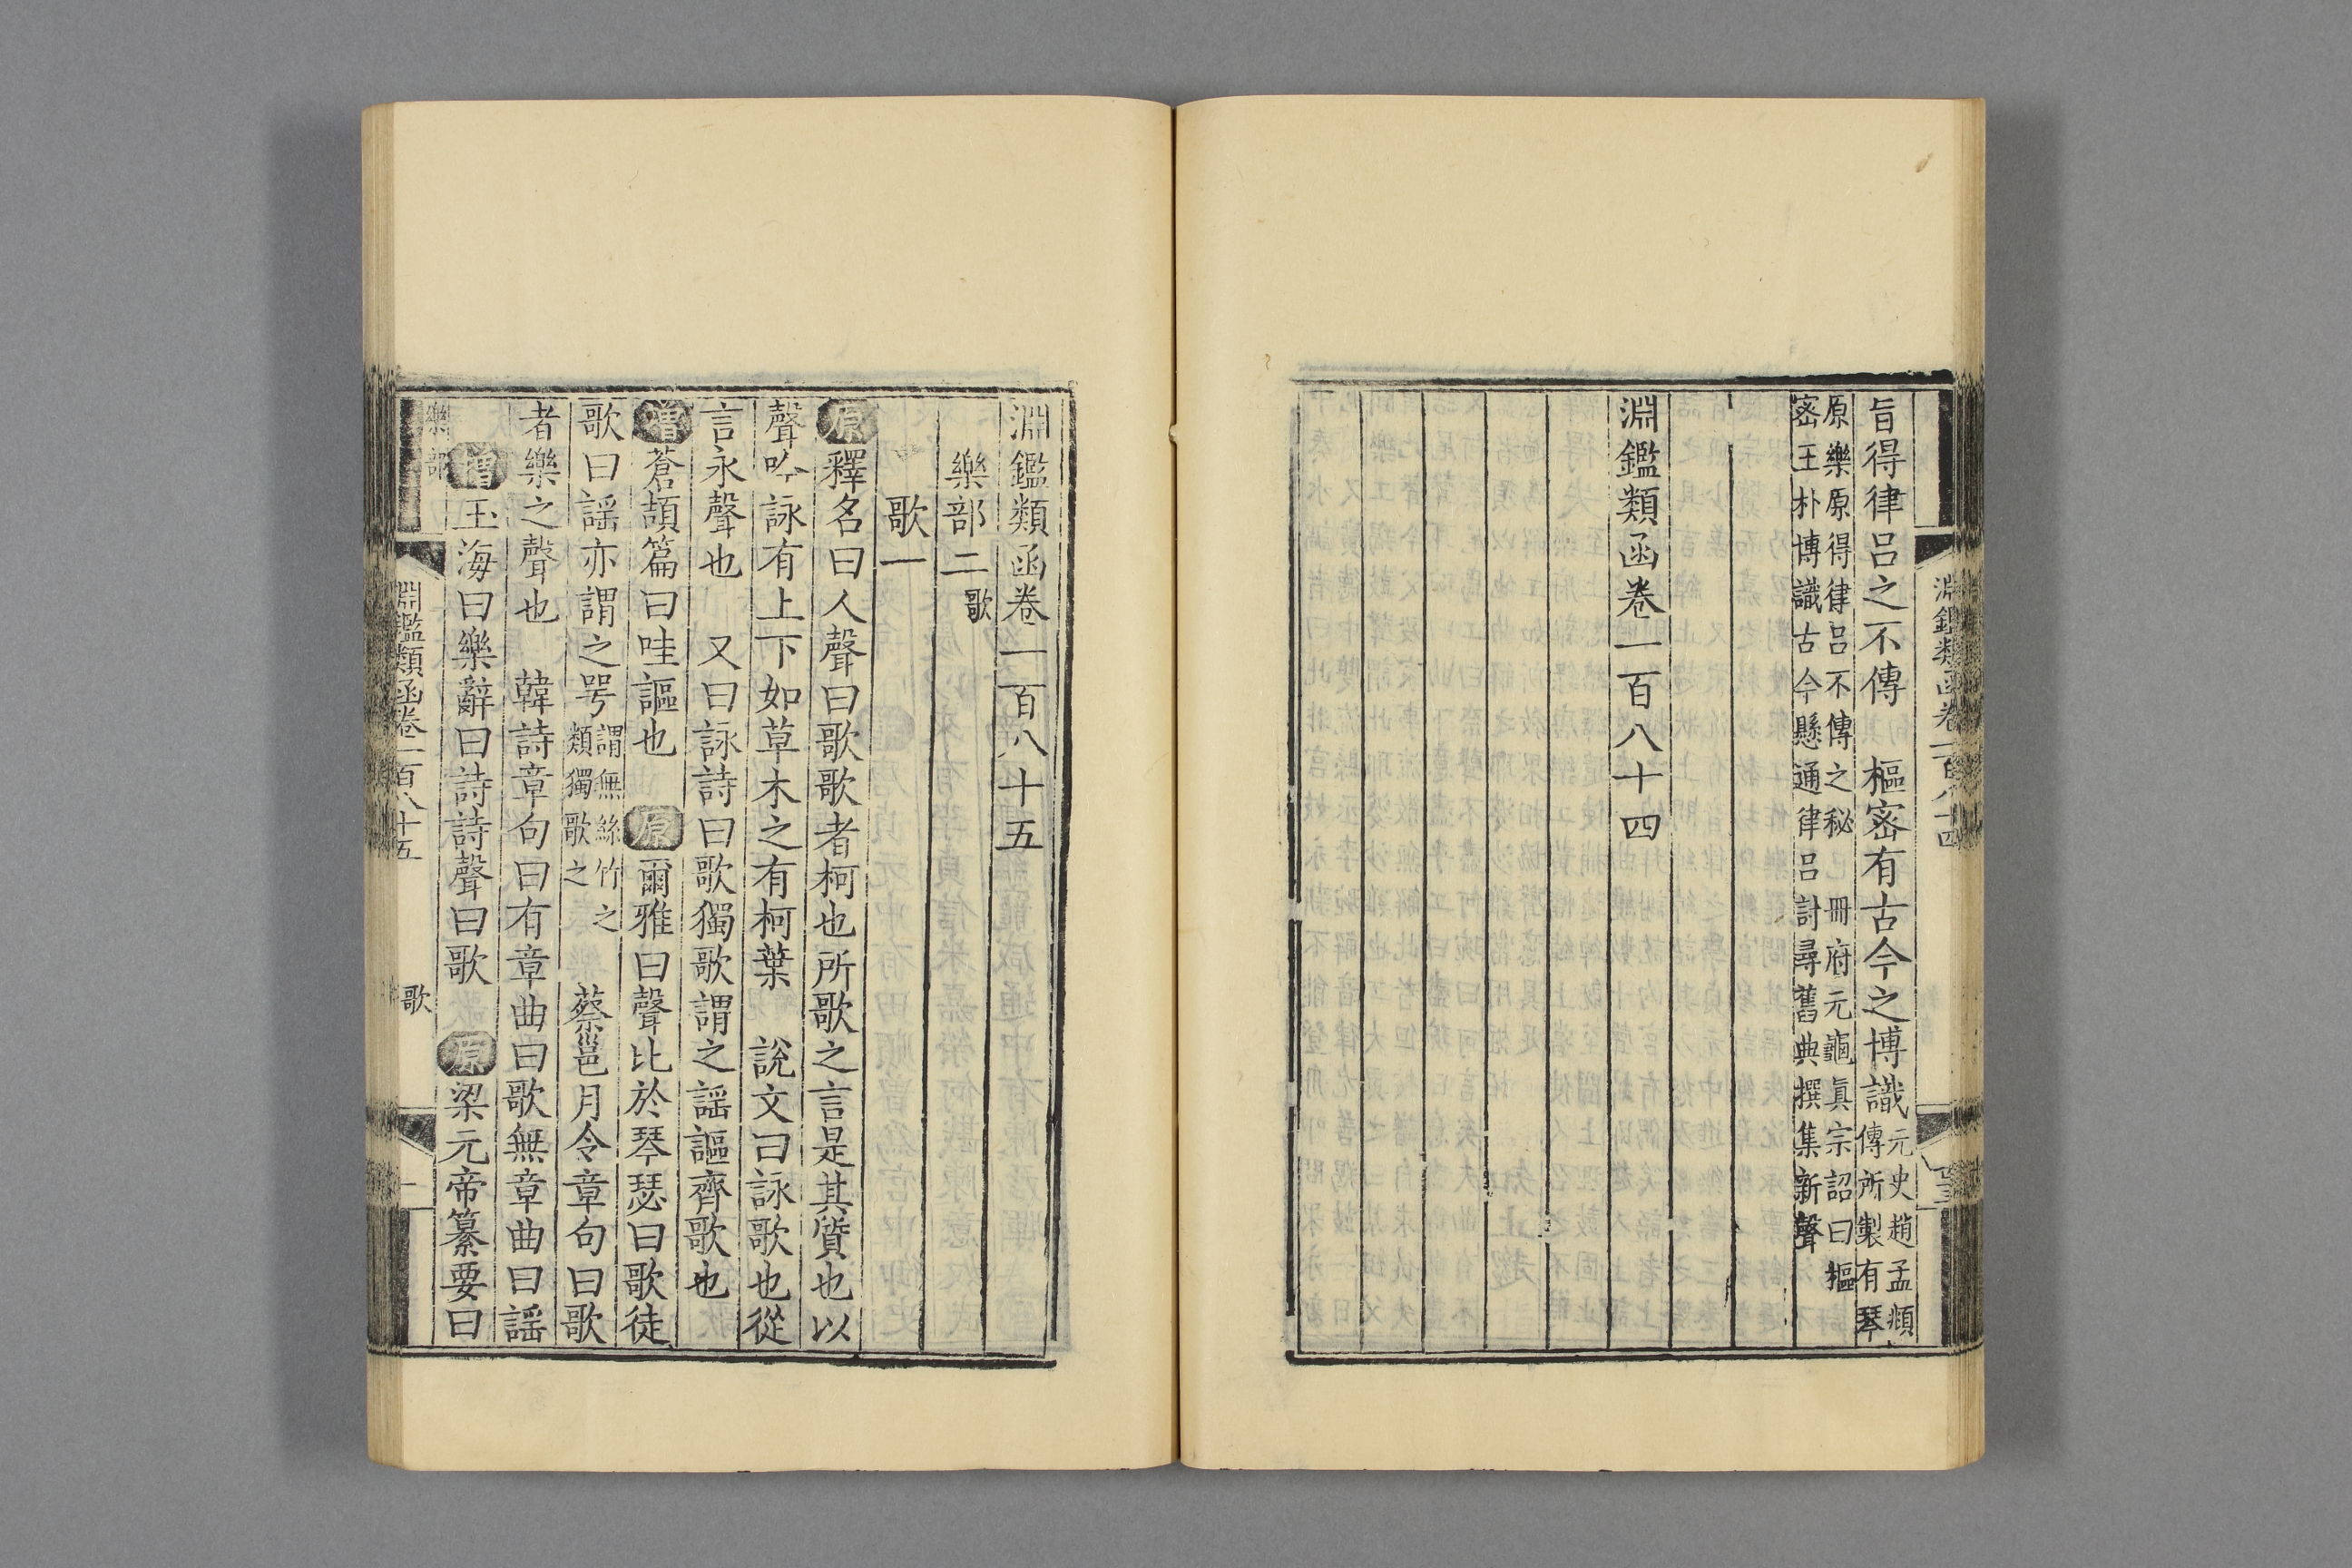 旨得律呂之不傳　樞密有古今之博識元史趙孟頫
傳所製有琴
原樂原得律呂不傳之秘　冊府元龜眞宗詔曰樞
密王朴博識古今懸通律呂討尋舊典撰集新聲
淵鑑類函卷一百八十四
淵鑑類函卷一百八十五
樂部二歌
歌一
原釋名曰人聲曰歌歌者柯也所歌之言是其質也以
聲吟詠有上下如草木之有柯葉　說文曰詠歌也從
言永聲也　又曰詠詩曰歌獨歌謂之謡謳齊歌也
增蒼頡篇曰哇謳也　原爾雅曰聲比於琴瑟曰歌徒
歌曰謡亦謂之咢謂無絲竹之
類獨歌之　蔡邕月令章句曰歌
者樂之聲也　韓詩章句曰有章曲曰歌無章曲曰謡
增玉海曰樂辭曰詩詩聲曰歌　原梁元帝纂要曰
樂部
淵鑑類函卷一百八十五
歌
一